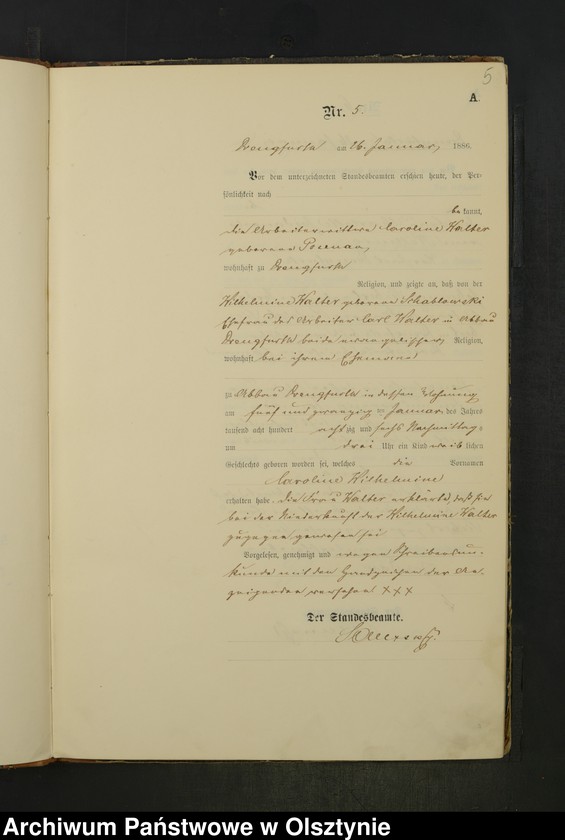 5
A.
Nr. 5.
Drengfurth am 26. Januar 1886.
Vor dem unterzeichneten Standesbeamten erschien heute, der Per-
sönlichkeit nach
bekannt,
die Arbeiterwittwe Caroline Walter
geborene
wohnhaft zu Drengfurth
Religion, und zeigte an, daß von der
Wilhelmine Walter geborene Schablowski
Ehefrau des Arbeiter Carl Walter in Abbau
Drengfurth beide evangelischer Religion,
wohnhaft bei ihrem Ehemann
zu Abbau Drengfurth in dessen Wohnung
am fünf und zwanzigten Januar des Jahres
tausend acht hundert achtzig und sechs Nachmittags
um drei Uhr ein Kind weiblichen
Geschlechts geboren worden sei, welches die Vornamen
Caroline Wilhelmine
erhalten habe. Die Frau Walter erklärte, daß sie
bei der Niederkunft der Wilhelmine Walter
zugegen gewesen sei
Vorgelesen, genehmigt und wegen Schreibensun-
kunde mit den Handzeichen der An-
zeigenden versehen XXX
Der Standesbeamte.
Archiwum Państwowe w Olsztynie